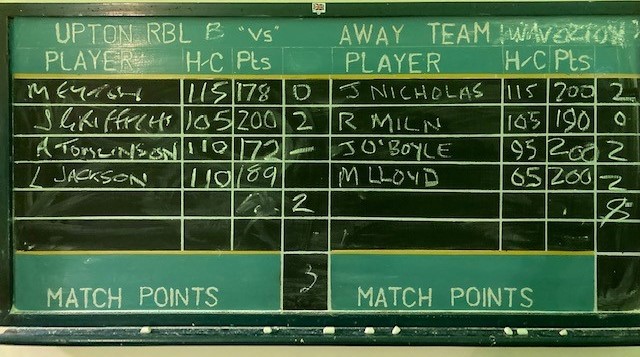 UPTON RBL B "Vs" AWAY TEAM WAVERTON
PLAYER H/C Pts PLAYER H/C Pts
M 115 178 0 J NICHOLAS 115 200 2
J GRIFFITHS 105 200 2 R MILN 105 190 0
A TOMLINSON 110 172 — J O'BOYLE 95 200 2
L JACKSON 110 189 M LLOYD 65 200 2
2 8
3
MATCH POINTS MATCH POINTS